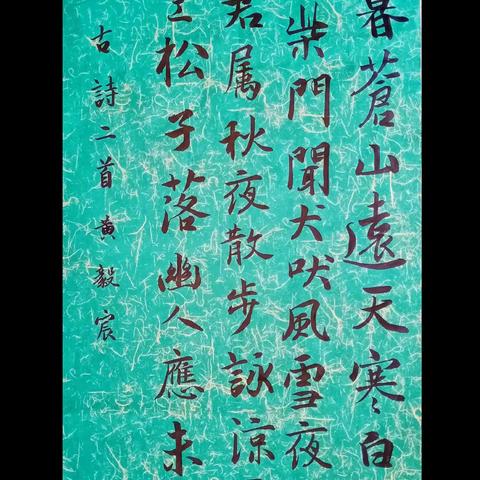 暮蒼山遠天寒白
柴門聞犬吠風雪夜
君属秋夜散步詠涼
松子落幽人應未
古詩二首黄毅宸